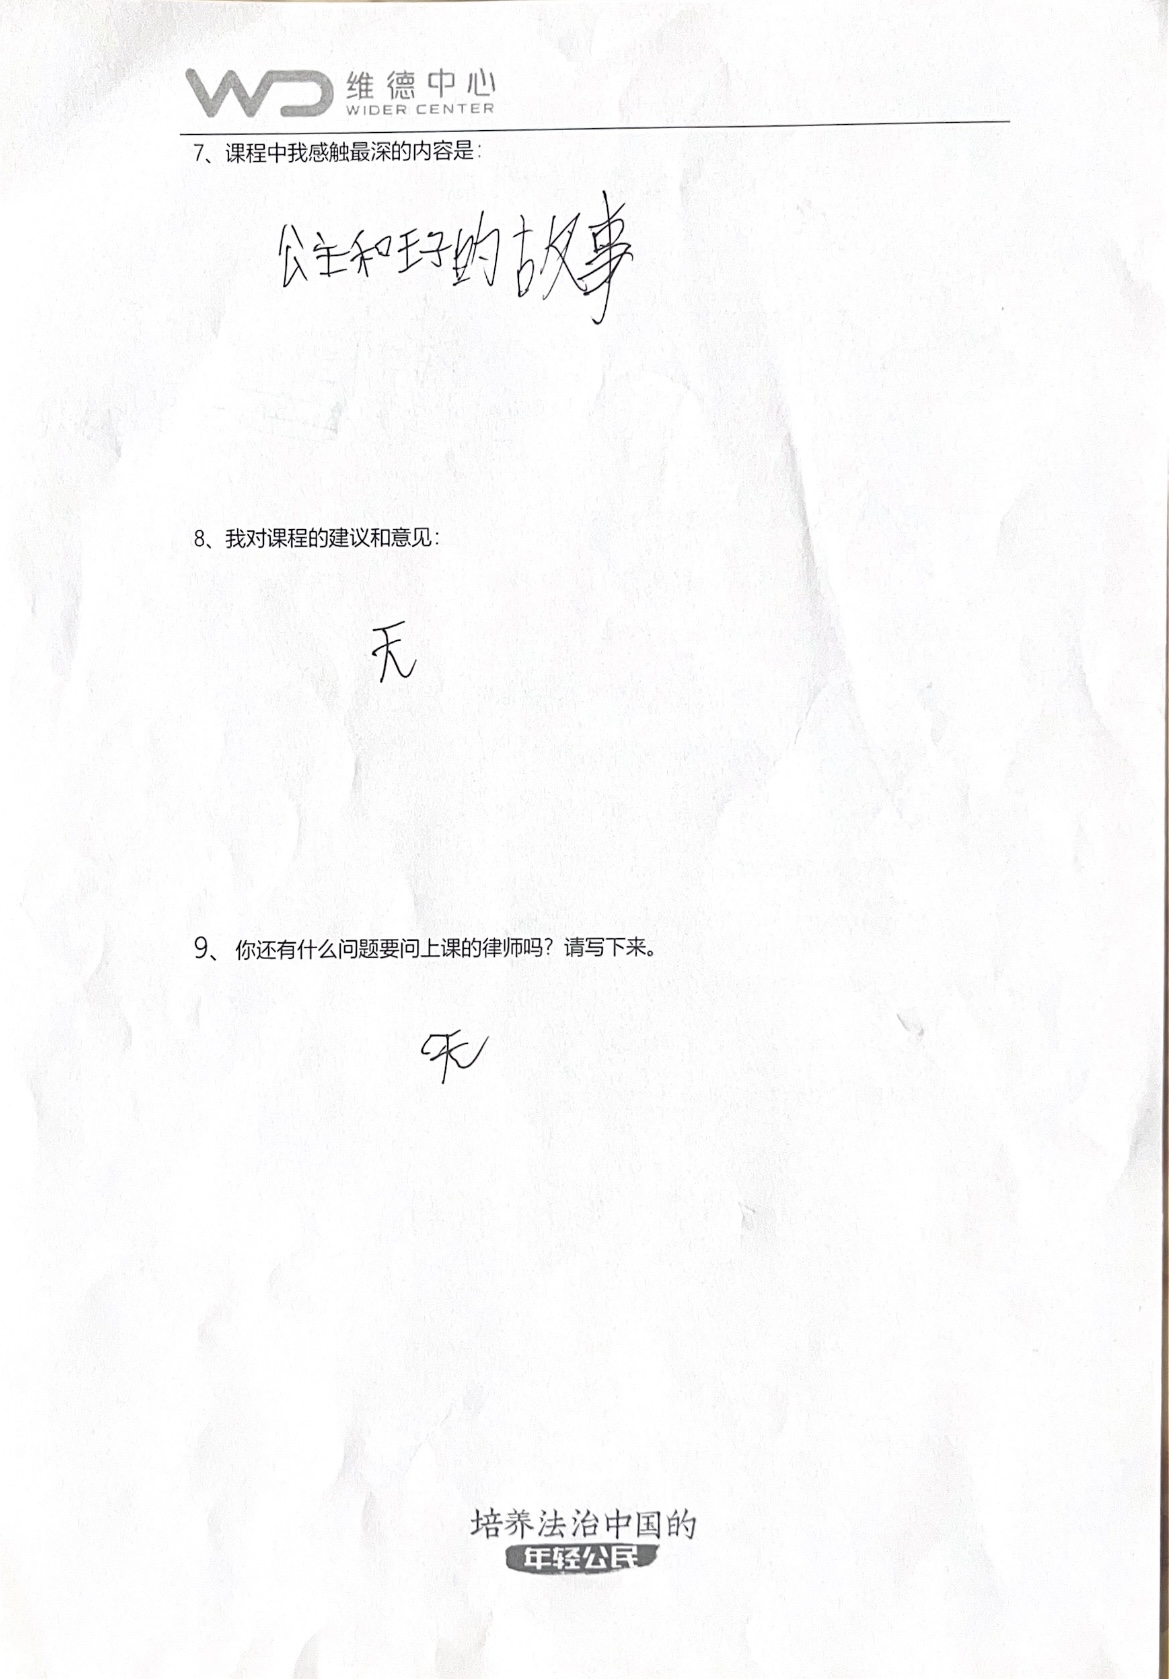 WD 维德中心
WIDER CENTER
7、课程中我感触最深的内容是：
公主和王子的故事
8、我对课程的建议和意见：
无
9、你还有什么问题要问上课的律师吗？请写下来。
无
培养法治中国的
年轻公民